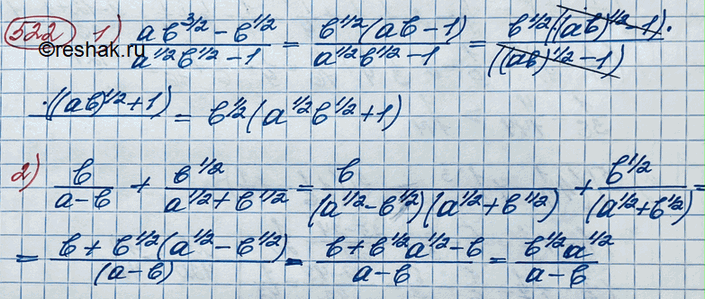 522 1) (ab^{3/2} - b^{1/2})/(a^{1/2}b^{1/2} - 1) = (b^{1/2}(ab - 1))/(a^{1/2}b^{1/2} - 1) = (b^{1/2}((ab)^{1/2} - 1)·)/(((ab)^{1/2} - 1))
©reshak.ru
·((ab)^{1/2} + 1) = b^{1/2}(a^{1/2}b^{1/2} + 1)
2) b/(a - b) + b^{1/2}/(a^{1/2} + b^{1/2}) = b/((a^{1/2} - b^{1/2})(a^{1/2} + b^{1/2})) + b^{1/2}/((a^{1/2} + b^{1/2})) =
= (b + b^{1/2}(a^{1/2} - b^{1/2}))/((a - b)) = (b + b^{1/2}a^{1/2} - b)/(a - b) = (b^{1/2}a^{1/2})/(a - b)